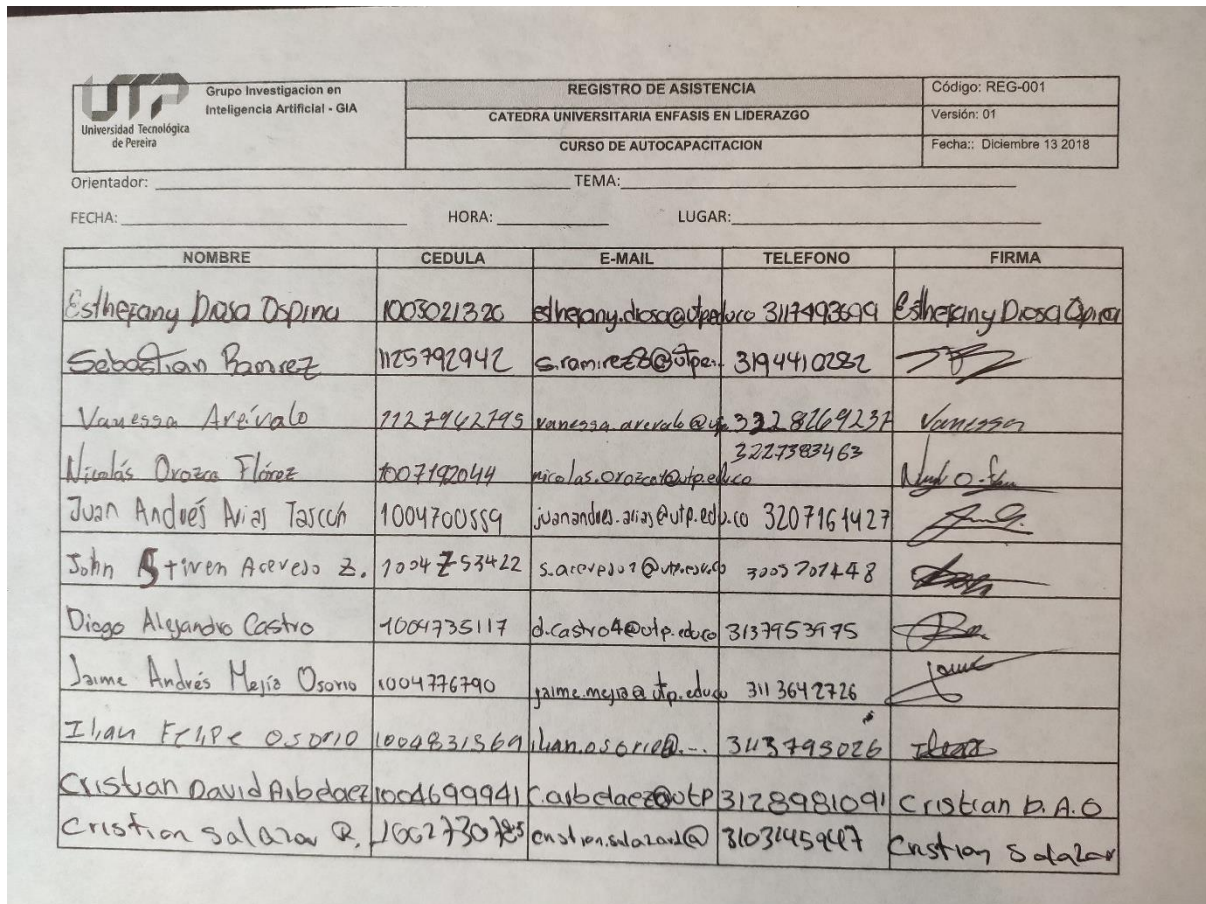 UTP
Universidad Tecnológica
de Pereira
Grupo Investigacion en
Inteligencia Artificial - GIA
REGISTRO DE ASISTENCIA
CATEDRA UNIVERSITARIA ENFASIS EN LIDERAZGO
CURSO DE AUTOCAPACITACION
Código: REG-001
Versión: 01
Fecha:: Diciembre 13 2018
Orientador: TEMA:
FECHA: HORA: LUGAR:
NOMBRE CEDULA E-MAIL TELEFONO FIRMA
Esthefany Diosa Ospina 1003021320 esthefany.diosa@utp.edu.co 3117493699 Esthefany Diosa Ospina
Sebastian Ramirez 1125792942 s.ramirez8@utp. 3194410282
Vanessa Arévalo 1127942795 vanessa.arevalo@utp. 3228269237 Vanessa
Nicolás Orozco Flórez 1007192044 nicolas.orozco1@utp.edu.co 3227383463
Juan Andrés Arias 1004700559 juanandres.arias@utp.edu.co 3207161427
John Stiven Acevedo Z. 1004753422 s.acevedo1@utp.edu.co
Diego Alejandro Castro 1004735117 d.castro4@utp.edu.co 3137953975
Jaime Andrés Mejía Osorio 1004776790 jaime.mejia@utp.edu.co 3113642726 Jaime
Ilian Felipe Osorio 1004831569 ilian.osorio@... 3113795026
Cristian David Arbelaez 1004699941 c.arbelaez@utp 3128981091 Cristian D. A. O
Cristian Salazar R. 1002730785 cristian.salazar2@ 3103145947 Cristian Salazar